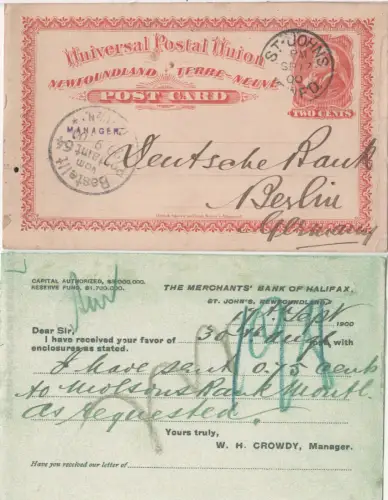 Universal Postal Union
NEWFOUNDLAND TERRE-NEUVE
POST CARD
TWO CENTS
ST. JOHN'S
PM
SP 17
00
NFD
MANAGER.
Bestellt
vom
Postamte 64
Deutsche Bank
Berlin
Germany
CAPITAL AUTHORIZED, $3,000,000.
RESERVE FUND, $1,700,000.
THE MERCHANTS' BANK OF HALIFAX,
ST. JOHN'S, NEWFOUNDLAND
17th Sept 1900
Dear Sir,
I have received your favor of 30th Augt with
enclosures as stated.
I have sent 0.75 cents
to Molsons Bank Montl.
as requested.
Yours truly,
W. H. CROWDY, Manager.
Have you received our letter of